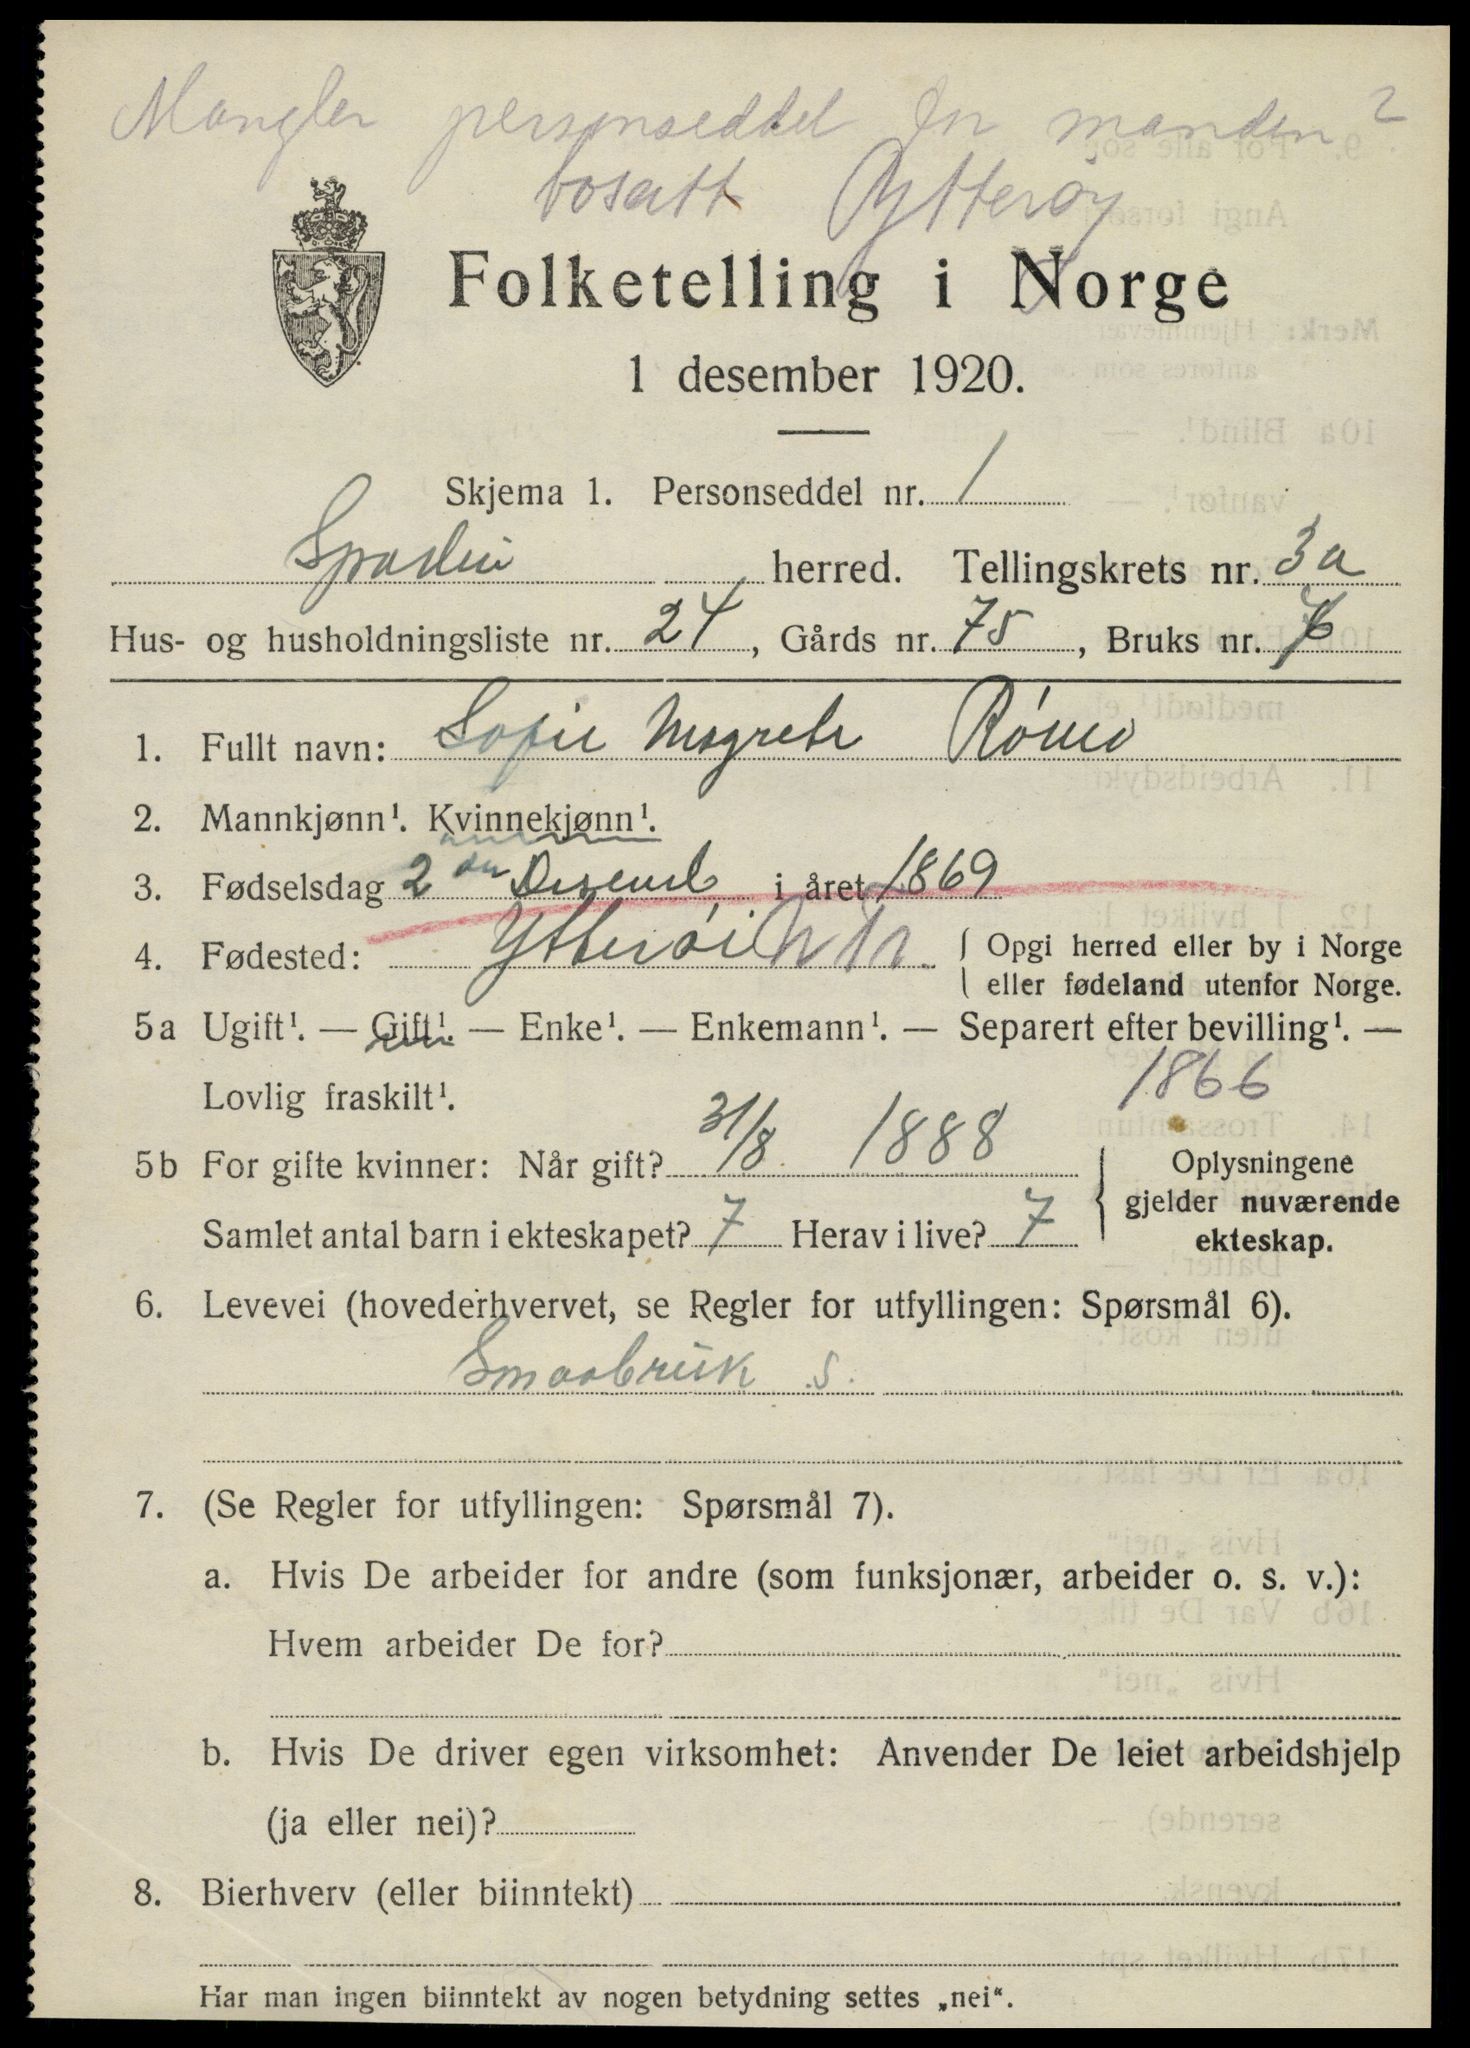 Mangler personseddel for manden?
bosatt Ytterøy
Folketelling i Norge
1 desember 1920.
Skjema 1. Personseddel nr. 1
herred. Tellingskrets nr. 3a
Hus- og husholdningsliste nr. 24, Gårds nr. 75, Bruks nr.
1. Fullt navn: Sofie Magrete
2. Mannkjønn¹. Kvinnekjønn¹.
3. Fødselsdag 2 den i året 1869
4. Fødested: Ytterøi N Tr. Opgi herred eller by i Norge
eller fødeland utenfor Norge.
5a Ugift¹. — Gift¹. — Enke¹. — Enkemann¹. — Separert efter bevilling¹. —
Lovlig fraskilt¹. 1866
5b For gifte kvinner: Når gift? 31/8 1888
Samlet antal barn i ekteskapet? 7 Herav i live? 7
Oplysningene
gjelder nuværende
ekteskap.
6. Levevei (hovederhvervet, se Regler for utfyllingen: Spørsmål 6).
Smaabruk s.
7. (Se Regler for utfyllingen: Spørsmål 7).
a. Hvis De arbeider for andre (som funksjonær, arbeider o. s. v.):
Hvem arbeider De for?
b. Hvis De driver egen virksomhet: Anvender De leiet arbeidshjelp
(ja eller nei)?
8. Bierhverv (eller biinntekt)
Har man ingen biinntekt av nogen betydning settes „nei“.